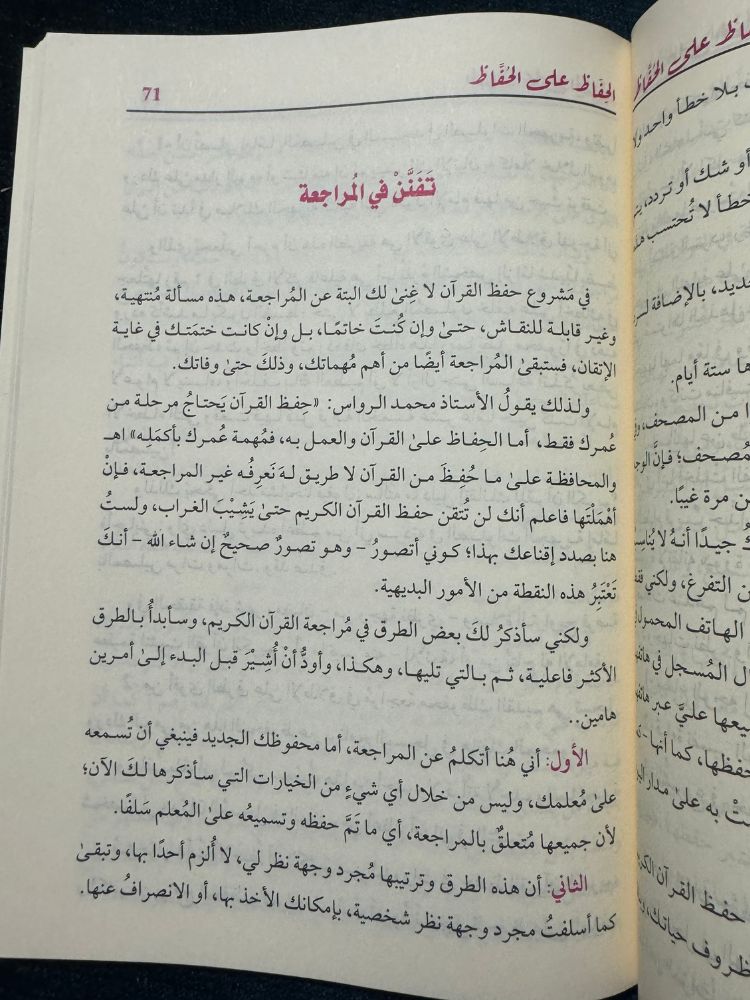 الحِفَّاظ على الحُفَّاظ
71
تَفَنَّنْ في المُراجعة
في مَشروع حفظ القرآن لا غِنىٰ لك البتة عن المُراجعة، هذه مسألة مُنتهية،
وغير قابلة للنقاش، حتىٰ وإن كُنتَ خاتمًا، بل وإنْ كانت ختمَتك في غاية
الإتقان، فستبقىٰ المُراجعة أيضًا من أهم مُهماتك، وذلكَ حتىٰ وفاتك.
ولذلك يقولُ الأستاذ محمد الرواس: «حِفظ القرآن يَحتاجُ مرحلة من
عُمرك فقط، أما الحِفاظ علىٰ القرآن والعمل به، فمُهمة عُمرك بأكمَلِه» اهـ
والمحافظة علىٰ ما حُفِظَ من القرآن لا طريق لهَ نَعرِفُه غير المراجعة، فإنْ
أهْمَلْتَها فاعلم أنك لن تُتقن حفظ القرآن الكريم حتىٰ يَشِيْبَ الغراب، ولستُ
هنا بصدد إقناعك بهذا؛ كوني أتصورُ – وهو تصورٌ صحيحٌ إن شاء الله – أنكَ
تَعْتَبِرُ هذه النقطة من الأمور البديهية.
ولكني سأذكرُ لكَ بعض الطرق في مُراجعة القرآن الكريم، وسأبدأُ بالطرق
الأكثر فاعلية، ثم بالتي تليها، وهكذا، وأودُّ أنْ أُشِيْرَ قبل البدء إلىٰ أمرين
هامين..
الأول: أني هُنا أتكلمُ عن المراجعة، أما محفوظك الجديد فينبغي أن تُسمعه
علىٰ مُعلمك، وليس من خلال أي شيءٍ من الخيارات التي سأذكرها لكَ الآن؛
لأن جميعها مُتعلقٌ بالمراجعة، أي ما تَمَّ حفظه وتسميعُه علىٰ المُعلم سَلفًا.
الثاني: أن هذه الطرق وترتيبها مُجرد وجهة نظر لي، لا أُلزم أحدًا بها، وتبقىٰ
كما أسلفتُ مجرد وجهة نظر شخصية، بإمكانك الأخذ بها، أو الانصرافُ عنها.
على الحُفَّاظ
بلا خطأ واحد
أو شك أو تردد،
خطأ لا تُحتسب
جديد، بالإضافة
ستة أيام.
من المصحف،
من مرة غيبًا.
جيدًا أنهُ لا
التفرغ، ولكني
الهاتف المحمول
المُسجل في
عليَّ عبر
حفظها، كما أنها
به علىٰ مدار
حفظ القرآن
حياتك،